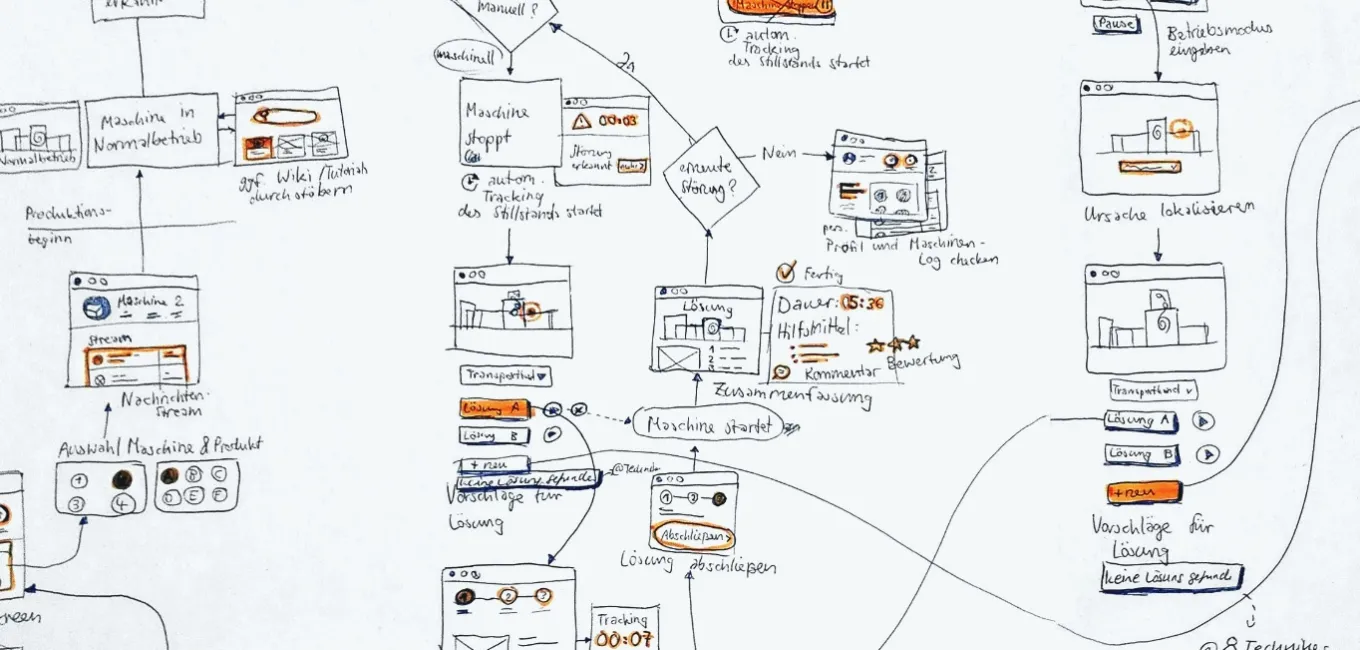 manuell?
maschinell
Maschine in
Normalbetrieb
Normalbetrieb
ggf. Wiki/Tutorials
durchstöbern
Produktions-
beginn
Maschine 2
stream
Nachrichten-
stream
Auswahl Maschine & Produkt
1
3
4
A B C
D E F
Maschine
stoppt
00:03
Störung
erkannt
autom.
Tracking
des Stillstands startet
Transportband
Lösung A
Lösung B
+ neu
keine Lösung gefunden
Vorschläge für
Lösung
1 2 3
Tracking
00:07
Ja
erneute
Störung?
Nein
Profil und Maschinen-
Log checken
Lösung
1
2
3
Fertig
Dauer: 05:36
Hilfsmittel:
Bewertung
Kommentar
Zusammenfassung
Maschine startet
1 2
Abschließen >
Lösung abschließen
Maschine stoppen
autom.
Tracking
des Stillstands startet
Pause
Betriebsmodus
eingeben
Ursache lokalisieren
Transportband
Lösung A
Lösung B
+ neu
Vorschläge für
Lösung
keine Lösung gefunden